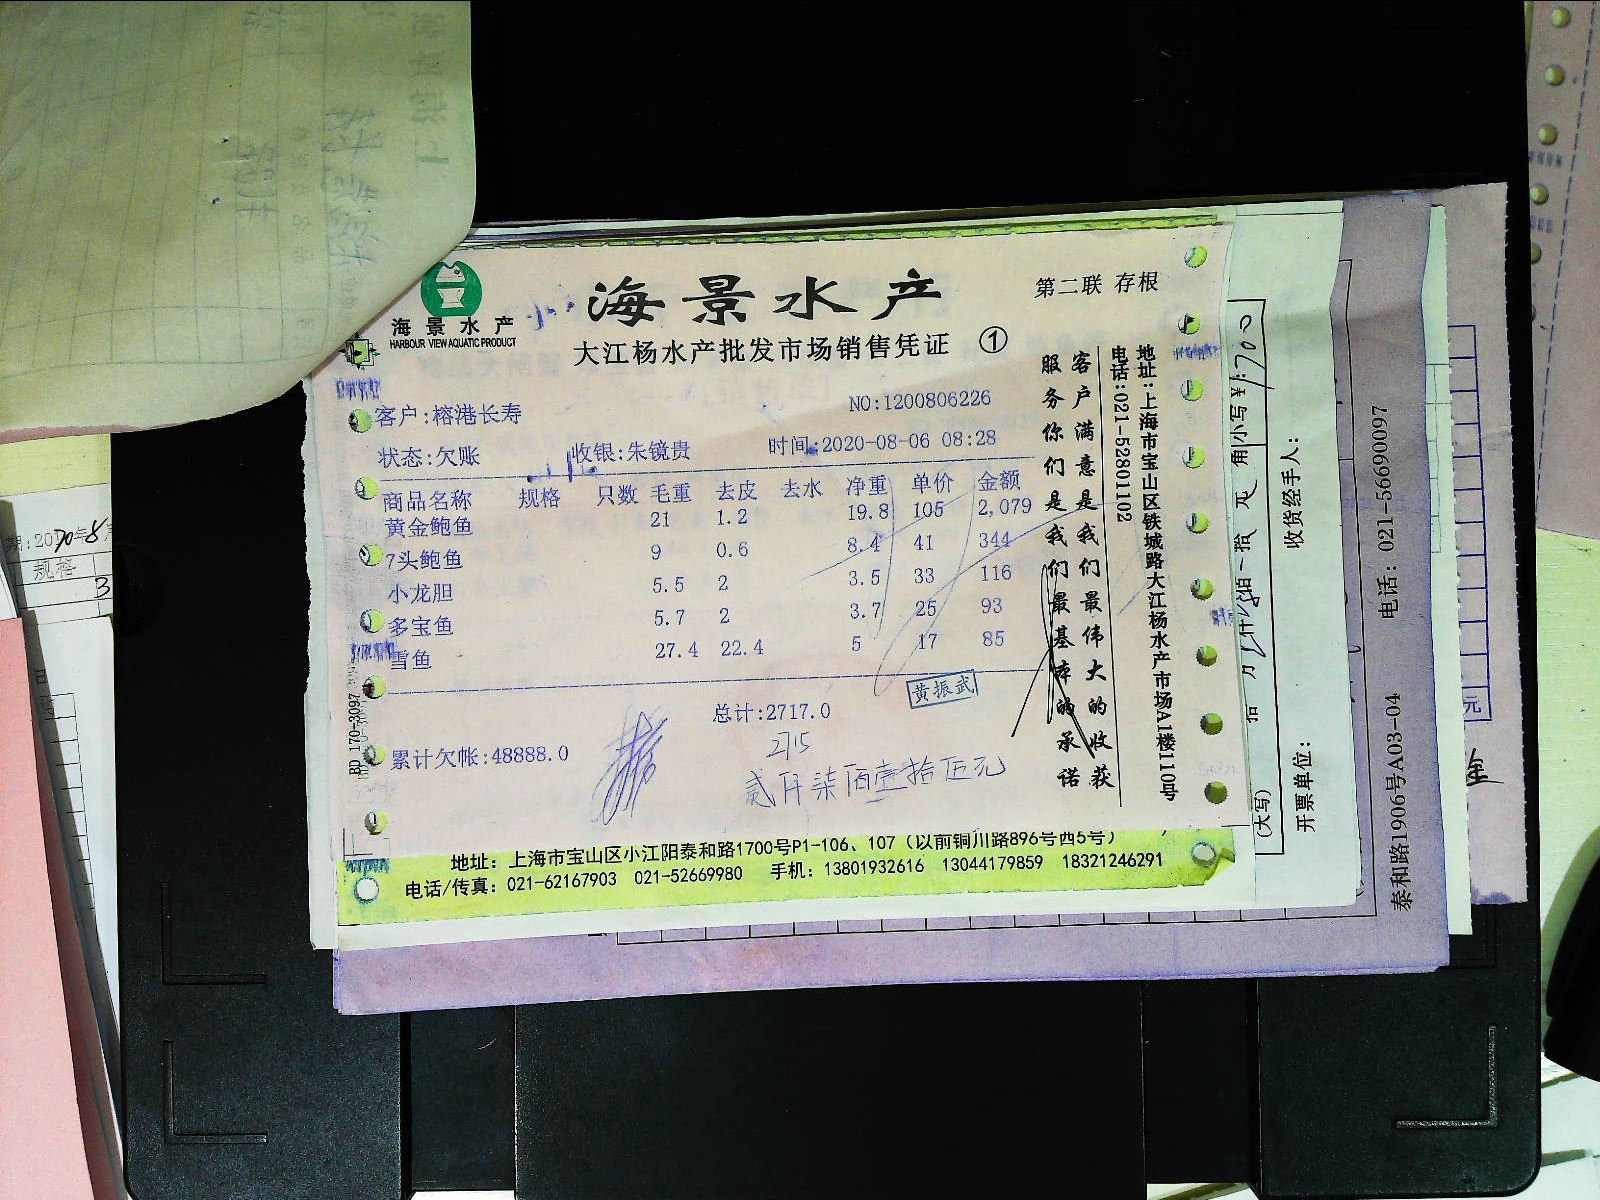 海景水产
HARBOUR VIEW AQUATIC PRODUCT
海景水产
第二联 存根
大江杨水产批发市场销售凭证 ①
客户:榕港长寿
NO:1200806226
状态:欠账 收银:朱镜贵 时间:2020-08-06 08:28
商品名称 规格 只数 毛重 去皮 去水 净重 单价 金额
黄金鲍鱼 21 1.2 19.8 105 2,079
7头鲍鱼 9 0.6 8.4 41 344
小龙胆 5.5 2 3.5 33 116
多宝鱼 5.7 2 3.7 25 93
雪鱼 27.4 22.4 5 17 85
黄振武
总计:2717.0
2715
累计欠帐:48888.0
贰仟柒佰壹拾伍元
客户满意是我们最伟大的收获
服务你们是我们最基本的承诺
地址:上海市宝山区铁城路大江杨水产市场A1楼110号
电话:021-52801102
BD 170-3097
地址：上海市宝山区小江阳泰和路1700号P1-106、107（以前铜川路896号西5号）
电话/传真：021-62167903 021-52669980 手机：13801932616 13044179859 18321246291
角小写¥:1700
(大写)
收货经手人：
开票单位：
泰和路1906号A03-04 电话：021-56690097
元
期:2020年8月
规格
3